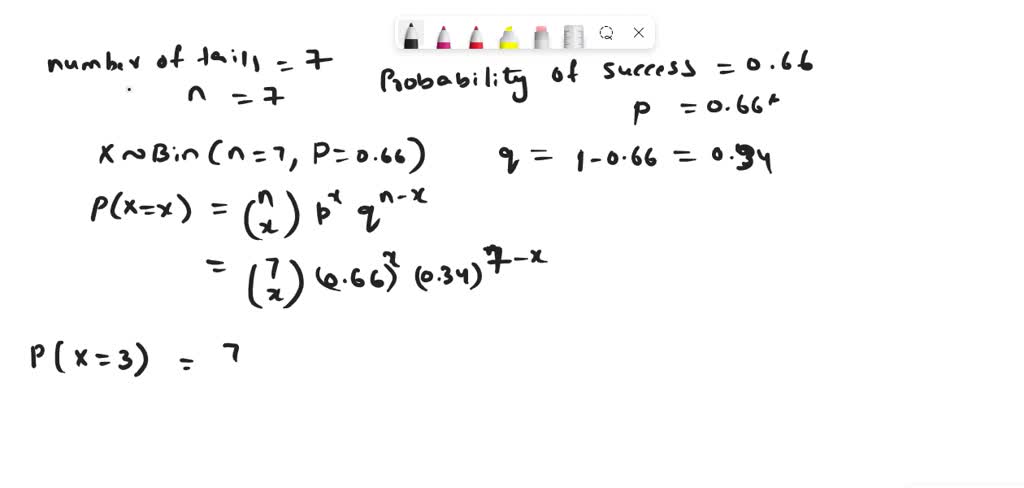 number of tails = 7
n = 7
Probability of success = 0.66
p = 0.66
X ~ Bin(n=7, P=0.66)
q = 1-0.66 = 0.34
P(X=x) = (n x) p^x q^n-x
= (7 x) (0.66)^x (0.34)^7-x
P(X=3) = 7